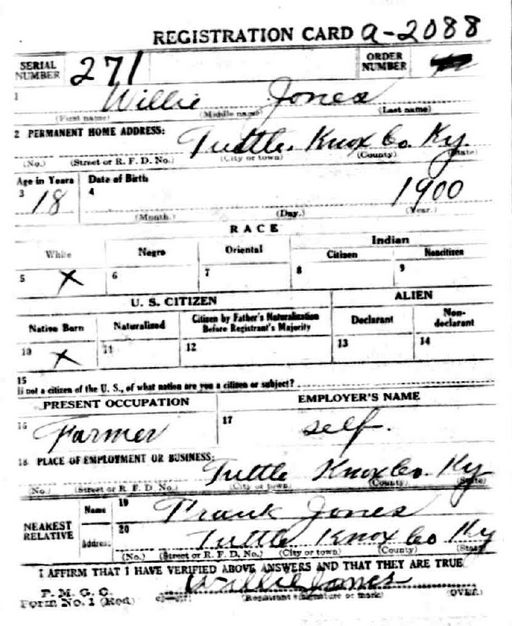 REGISTRATION CARD a-2088
SERIAL NUMBER 271 ORDER NUMBER
1 Willie Jones
(First name) (Middle name) (Last name)
2 PERMANENT HOME ADDRESS: Tuttle. Knox Co. Ky.
(No.) (Street or R. F. D. No.) (City or town) (County) (State)
Age in Years Date of Birth
3 18 4 1900
(Month.) (Day.) (Year.)
RACE
White Negro Oriental Indian
Citizen Noncitizen
5 X 6 7 8 9
U. S. CITIZEN ALIEN
Native Born Naturalized Citizen by Father's Naturalization Before Registrant's Majority Declarant Non-declarant
10 X 11 12 13 14
15
If not a citizen of the U. S., of what nation are you a citizen or subject?
PRESENT OCCUPATION EMPLOYER'S NAME
16 Farmer 17 self.
18 PLACE OF EMPLOYMENT OR BUSINESS: Tuttle Knox Co. Ky
(No.) (Street or R. F. D. No.) (City or town) (County) (State)
NEAREST RELATIVE Name 19 Frank Jones
Address 20 Tuttle Knox Co Ky
(No.) (Street or R. F. D. No.) (City or town) (County) (State)
I AFFIRM THAT I HAVE VERIFIED ABOVE ANSWERS AND THAT THEY ARE TRUE
Willie Jones
P. M. G. O.
Form No. 1 (Red) (Registrant's signature or mark) (OVER)